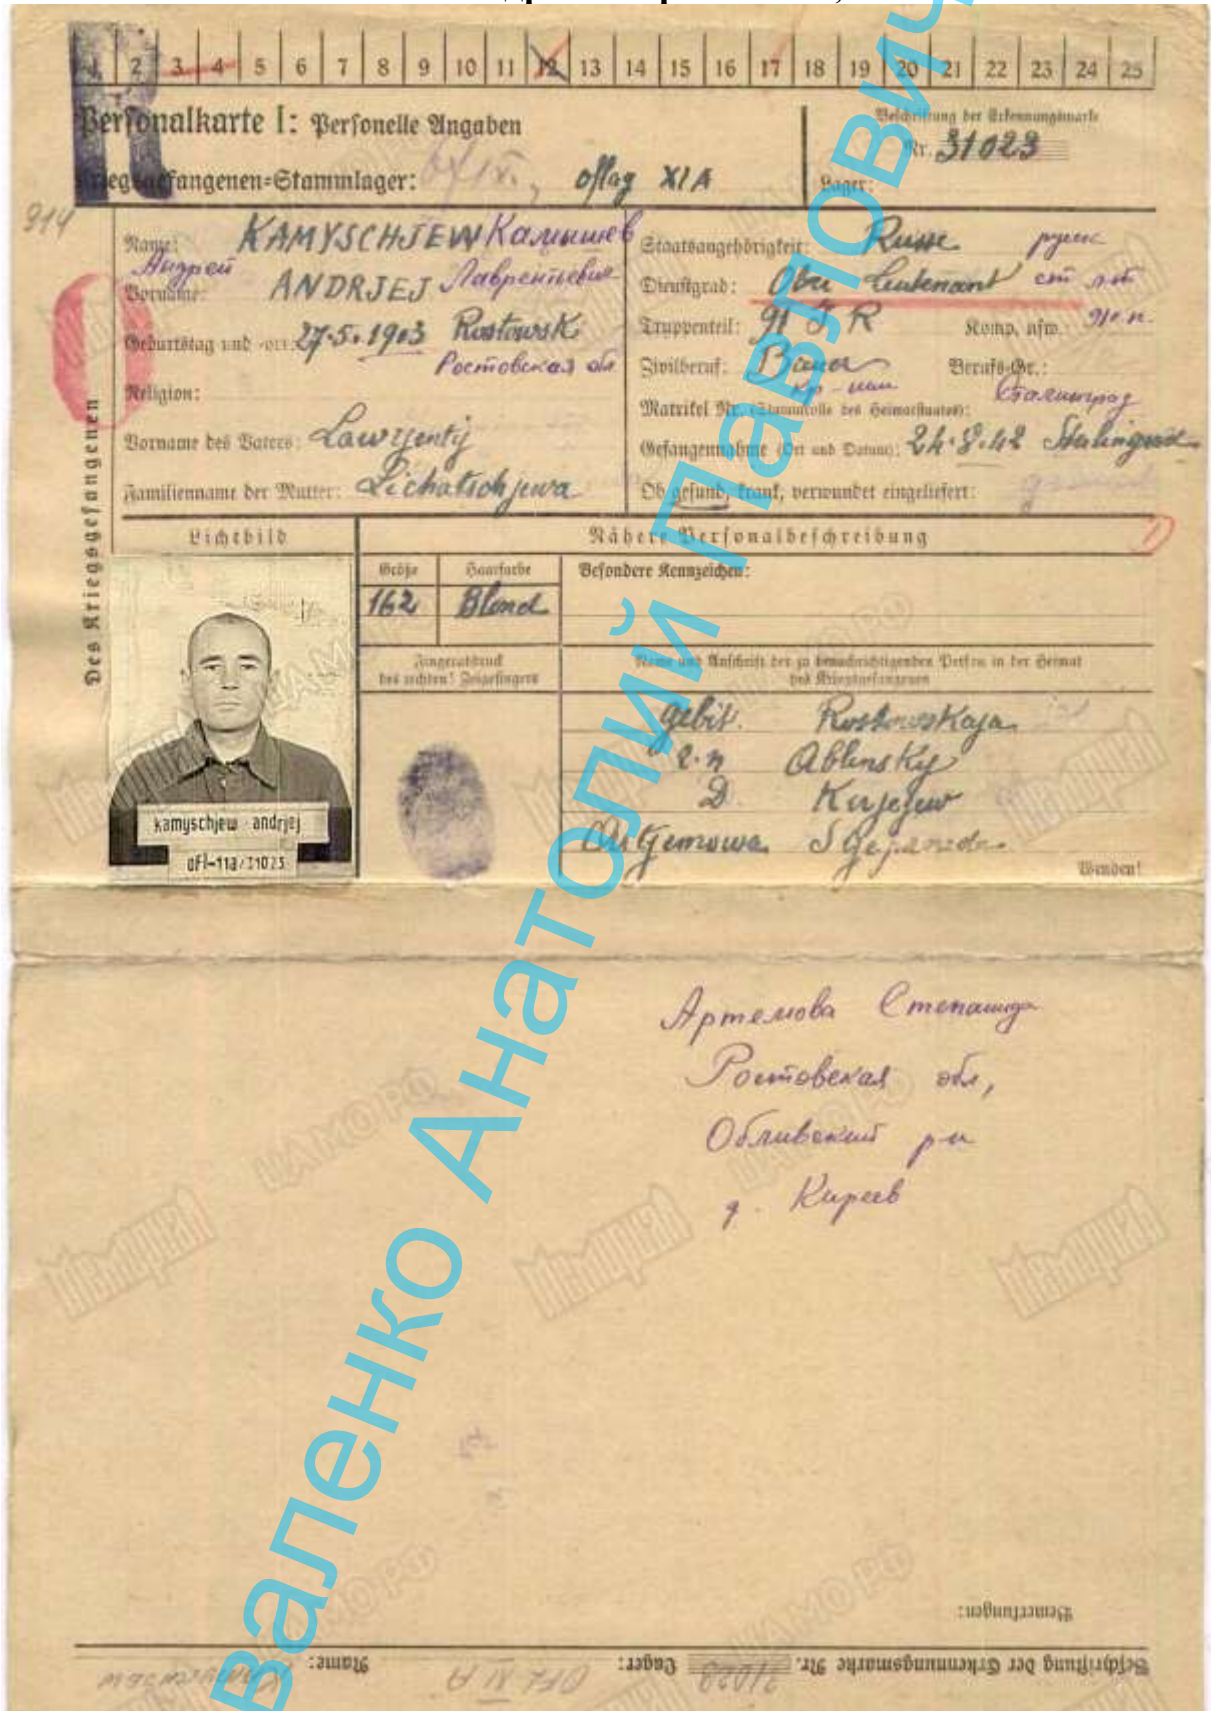 1 2 3 4 5 6 7 8 9 10 11 12 13 14 15 16 17 18 19 20 21 22 23 24 25
Personalkarte I: Personelle Angaben
Kriegsgefangenen=Stammlager: oflag XI A
Beschriftung der Erkennungsmarke
Nr. 31023
Lager:
914
Des Kriegsgefangenen
Name: KAMYSCHJEW Камышев
Андрей
Vorname: ANDRJEJ Лаврентьевич
Geburtstag und -ort: 27.5.1903 Rostowsk
Ростовская обл
Religion:
Vorname des Vaters: Lawrjentij
Familienname der Mutter: Lichatschjewa
Staatsangehörigkeit: Russe русск
Dienstgrad: Ober Leutenant ст л-т
Truppenteil: 91 I R Komp. usw.: 91 с.п.
Zivilberuf: Bauer Berufs-Gr.:
Matrikel Nr. (Stammrolle des Heimatstaates): Сталинград
Gefangennahme (Ort und Datum): 24.8.42 Stalingrad
Ob gesund, krank, verwundet eingeliefert:
Lichtbild
Nähere Personalbeschreibung
Größe Haarfarbe Besondere Kennzeichen:
162 Blond
Fingerabdruck
des rechten! Zeigefingers
Name und Anschrift der zu benachrichtigenden Person in der Heimat
des Kriegsgefangenen
gebit. Rostowskaja
Ablinsky
D. Kirjejew
Artjemowa
Wenden!
kamyschjew andrjej
ofl-11a/31023
Артемова Степанида
Ростовская обл,
Обливский р-н
д. Киреев
Bemerkungen:
Beschriftung der Erkennungsmarke Nr. 31023 Lager: OFL XI A Name: Kamyschjew
валенко Анатолий Павлович
Мемориал
ЦАМО РФ